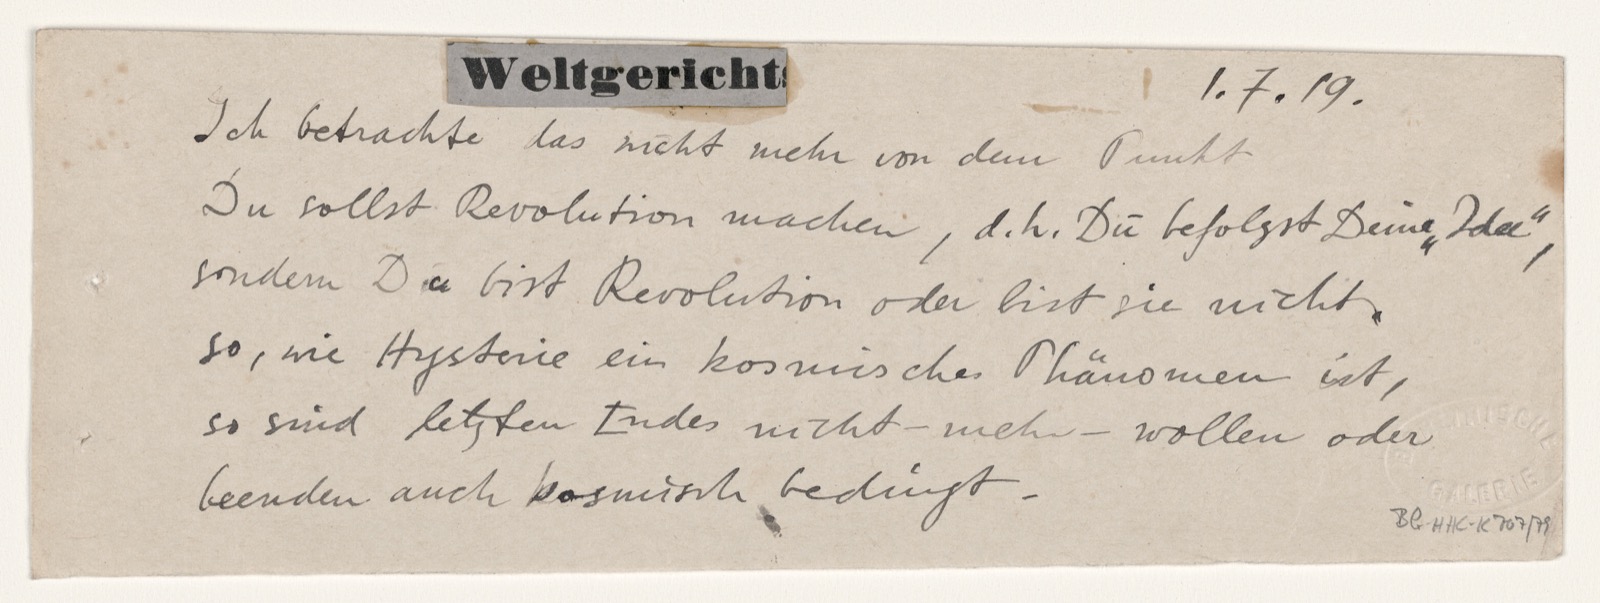 Weltgerichts
1. 7. 19.
Ich betrachte das nicht mehr von dem Punkt
Du sollst Revolution machen, d.h. Dū befolgst Deine „Idee“,
sondern Du bist Revolution oder bist sie nicht.
so, wie Hysterie ein kosmisches Phänomen ist,
so sind letzten Endes nicht-mehr-wollen oder
beenden auch kosmisch bedingt.
BERLINISCHE
GALERIE
BG-HHC-K 707/79